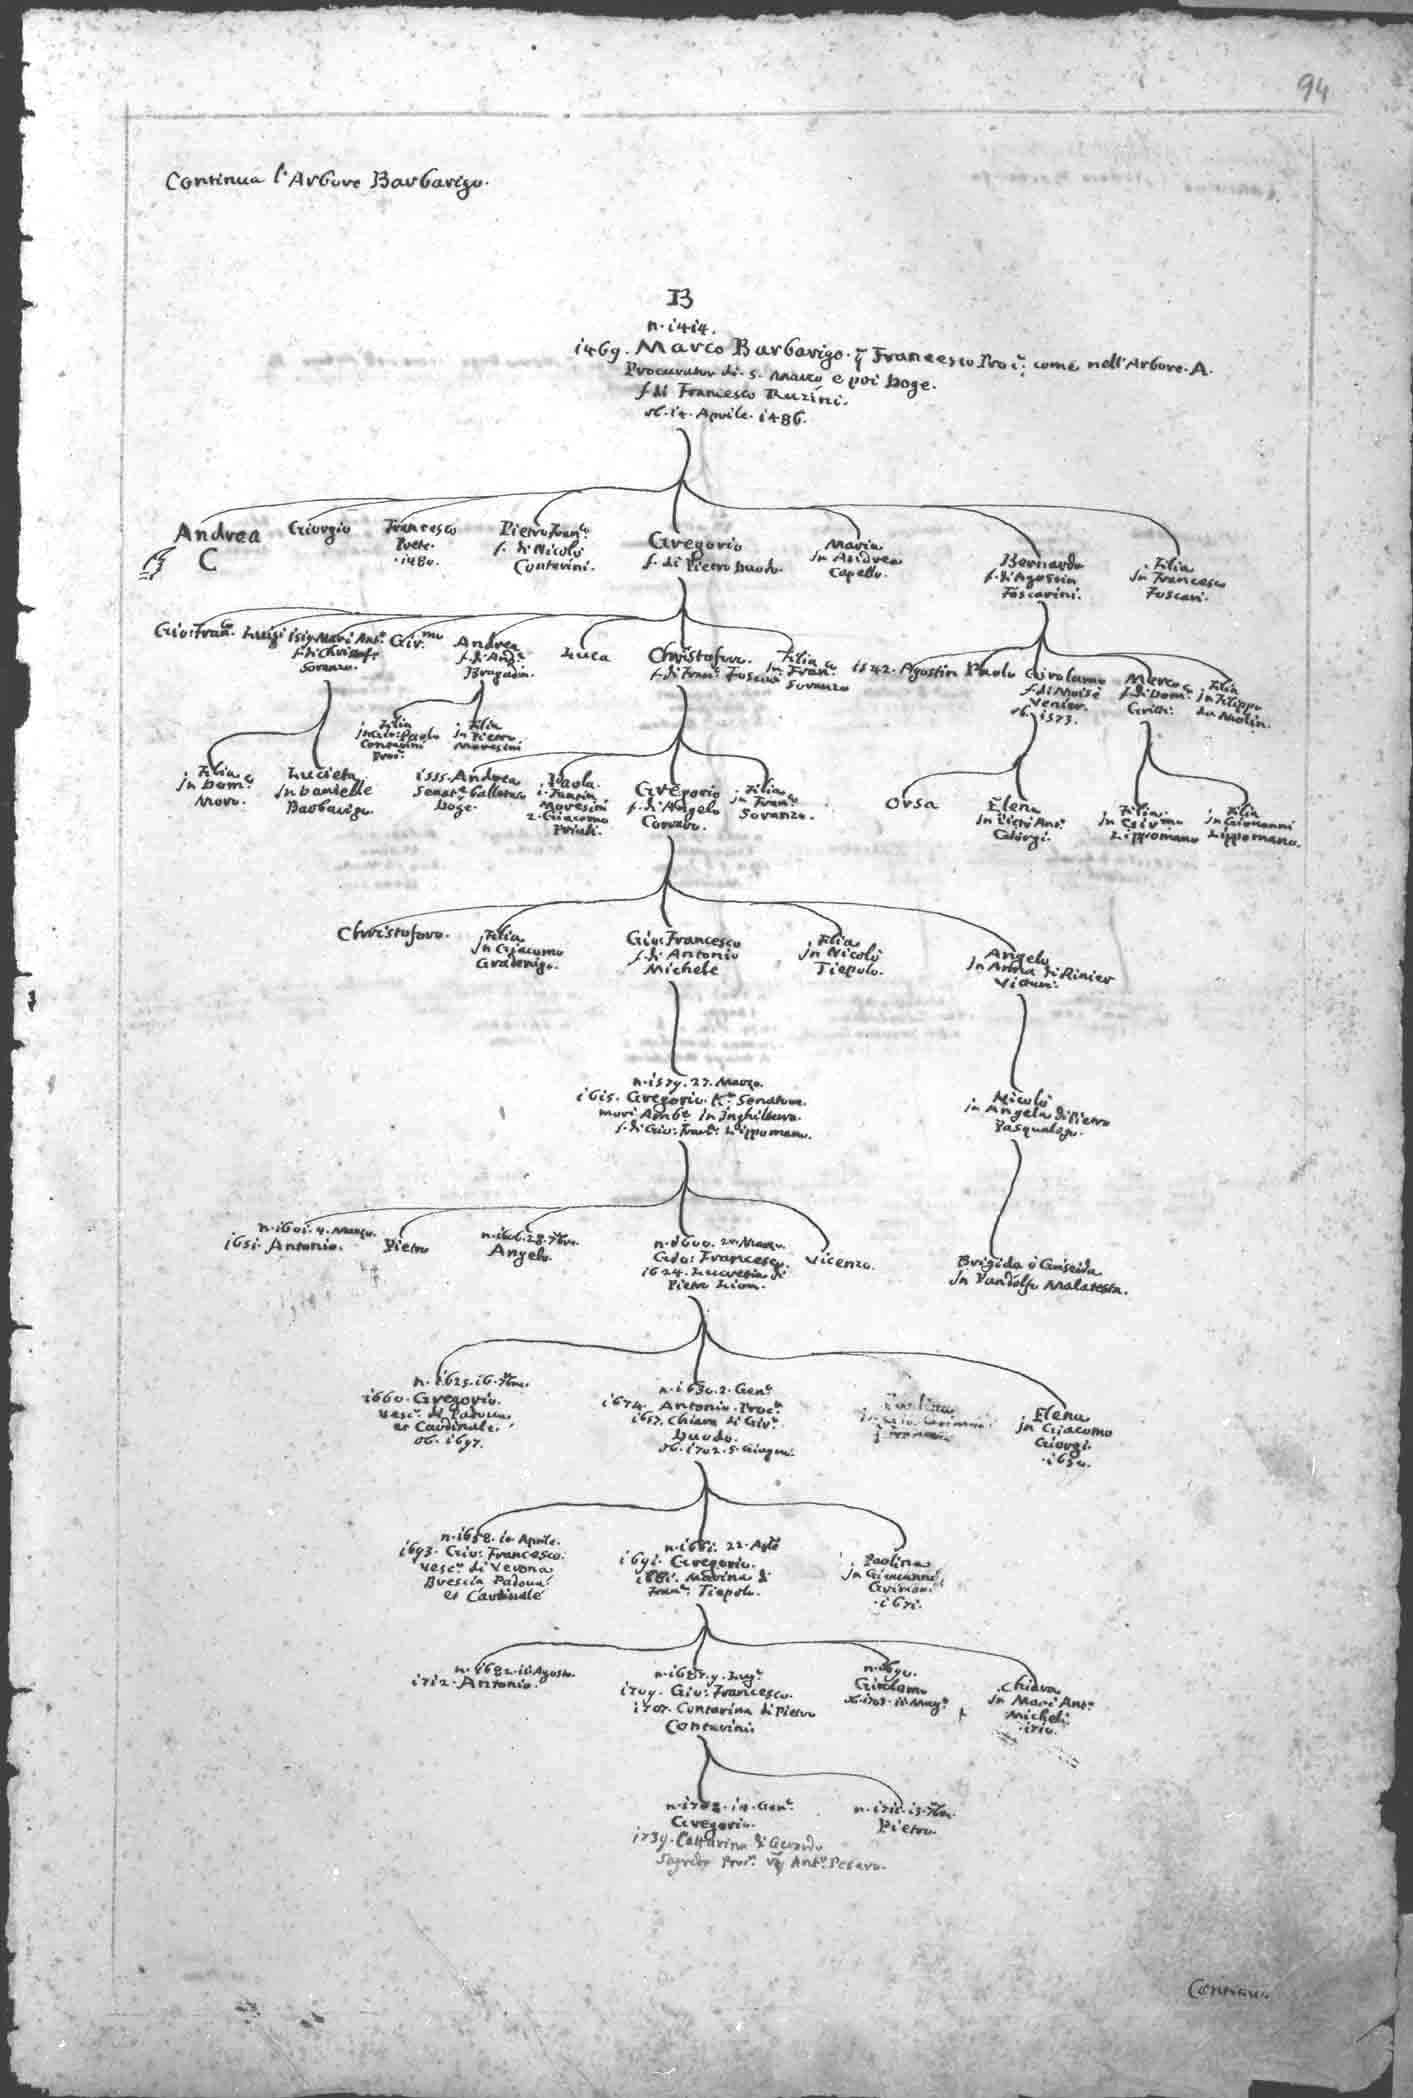 94
Continua l'Arbore Barbarigo.
B
n. 1414.
1469. Marco Barbarigo. q Francesco Proc.r come nell'Arbore. A.
Procurator di. S. Marco e poi Doge.
f. di Francesco Ruzini.
ob. 14. Aprile. 1486.
Andrea
C
Giorgio
Francesco
Prete.
1480.
Pietro Fran.co
f. di Nicolò
Contarini.
Gregorio
f. di Pietro Duodo.
Maria
in Andrea
Capello.
Bernardo
f. di Agostin
Foscarini.
Filia
in Francesco
Foscari.
Gio: Fran.co
Luigi
Mari Ant.o
f. di Christoff.
Soranzo.
Gir.mo
Andrea
f. di And.a
Bragadin.
Luca
Christoforo.
f. di Fran.co Foscari
Filia
in Fran.co
Soranzo
1542. Agostin
Paolo
Girolamo
f. di Moisè
Venier.
ob. 1573.
Marco
f. di Dom.co
Gritti.
Filia
in Filippo
da Molin.
Filia
in Gio: Paolo
Contarini
Proc.r
Filia
in Pietro
Moresini
Filia
in Dom.co
Moro.
Lucieta
in Daniele
Barbarigo.
1555. Andrea
Senat.r ballotato
Doge.
Paola
Moresini
2. Giacomo
Priuli.
Gregorio
f. di Angelo
Corraro.
Filia
in Fran.co
Soranzo.
Orsa
Elena
in Pietr' Ant.o
Filia
in Gir.mo
Lippomano
Filia
in Giovanni
Lippomano.
Christoforo.
Filia
in Giacomo
Gradenigo.
Gio: Francesco
f. di Antonio
Michele
Filia
in Nicolò
Tiepolo.
Angelo
in Anna di Rinier
Vituri.
n. 1579. 27. Marzo.
1615. Gregorio K.r Senatore.
morì Amb.r in Inghilterra.
f. di Gio: Fran.co Lippomano.
Nicolò
in Angela di Pietro
Pasqualigo.
n. 1601. 4. Marzo.
1651. Antonio.
Pietro
n. 1606. 28. 7bre.
Angelo.
n. 1600. 20. Marzo.
Gio: Francesco.
1624. Lucretia di
Pietro Lion.
Vicenzo.
Brigida ò Griseida
in Pandolfo Malatesta.
n. 1625. 16. 7bre.
1660. Gregorio.
Vesc.o di Padova
et Cardinale.
ob. 1697.
n. 1630. 2. Gen.o
1674. Antonio. Proc.r
1657. Chiara di Gio:
Duodo.
ob. 1702. 5. Giugno.
Elena
in Giacomo
Giorgi.
1650.
n. 1658. 10. Aprile.
1693. Gio: Francesco.
Vesc.o di Verona
Brescia Padova
et Cardinale
22. Ag.to
1691. Gregorio.
1681. Marina di
Fran.co Tiepolo.
Paolina
in Giovanni
Grimani.
1671.
n. 1682. 16. Agosto.
1712. Antonio.
n. 1687. 9. Lug.o
1709. Gio: Francesco.
1707. Contarina di Pietro
Contarini
n. 1690.
Girolamo
Chiara
in Mari Ant.o
Micheli
1710.
n. 1708. 14. Gen.o
Gregorio.
1739. Cattarina di Gerardo
Sagredo Proc.r Ant.o Pesaro.
n. 1715. 13. 7bre.
Pietro.
Continua